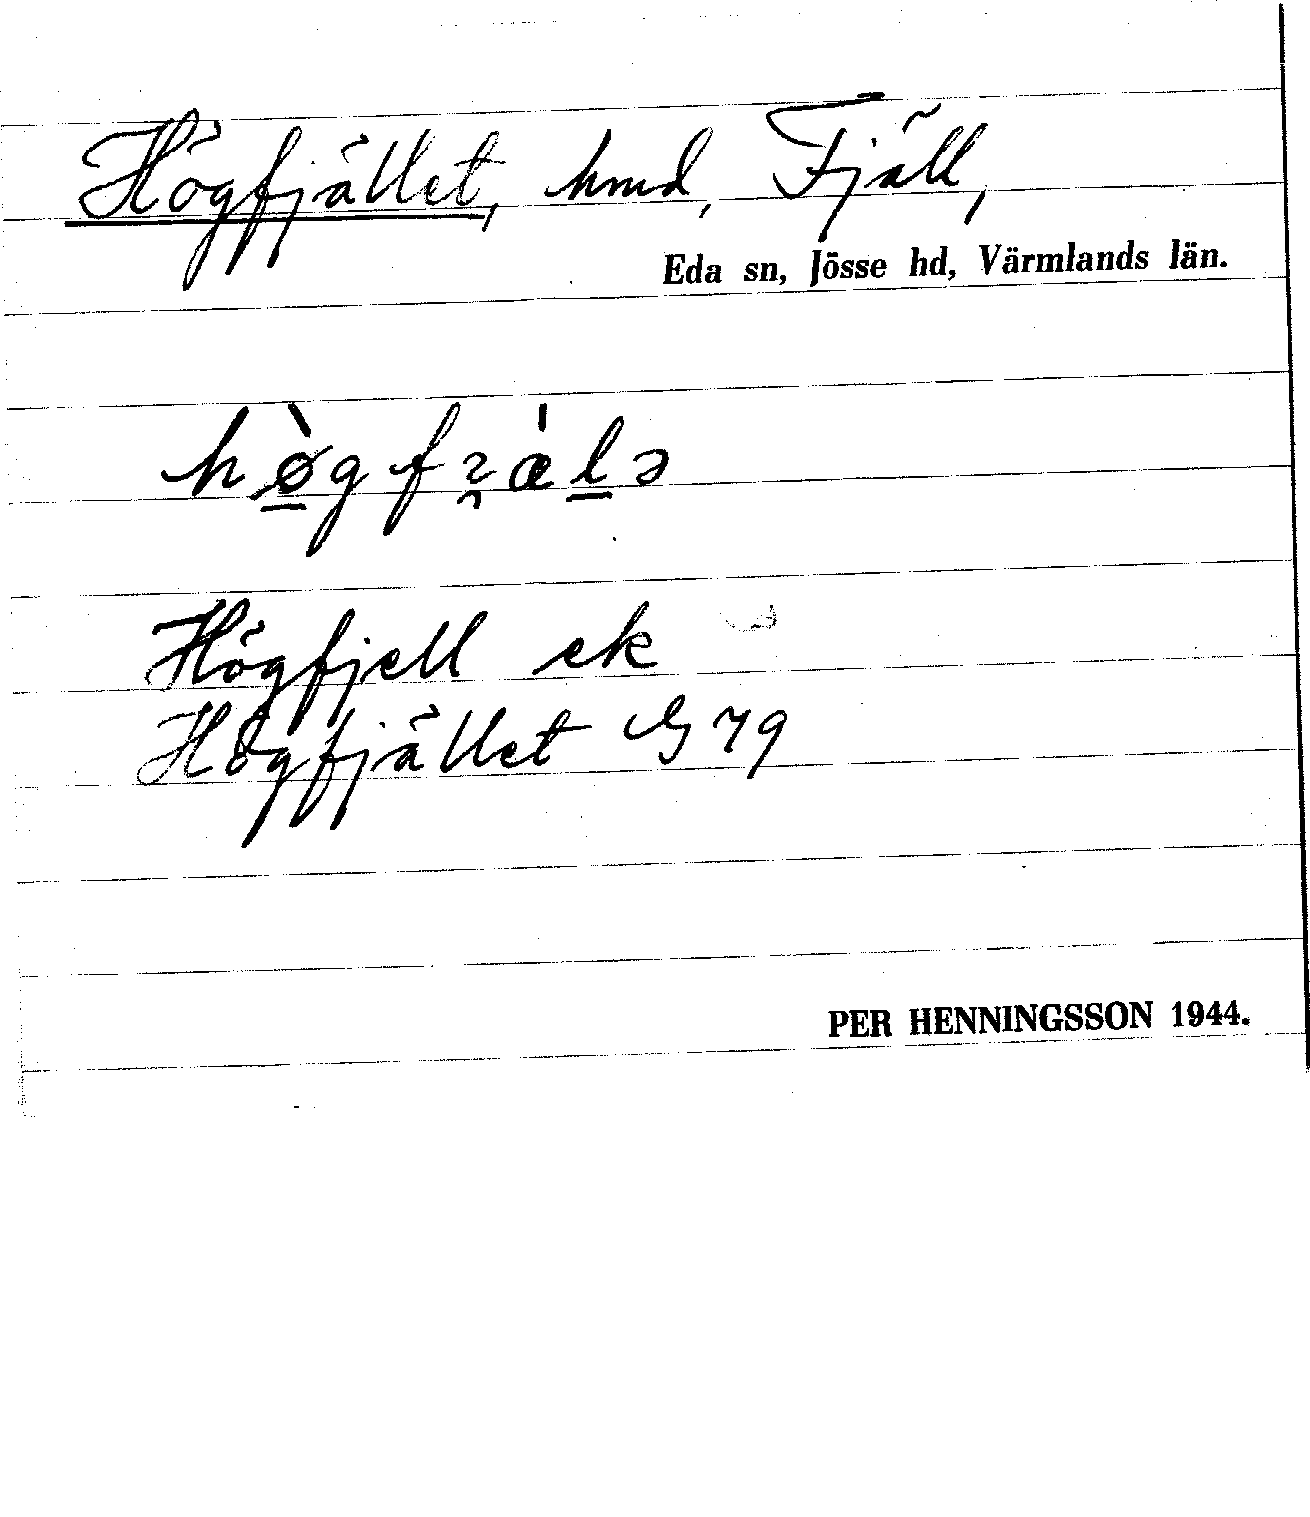 Högfjället, hmd, Fjäll,
Eda sn, Jösse hd, Värmlands län.
hø̠̀gfꝛ̯æ̍l̠ə
Högfjell ek
Högfjället G 79
PER HENNINGSSON 1944.